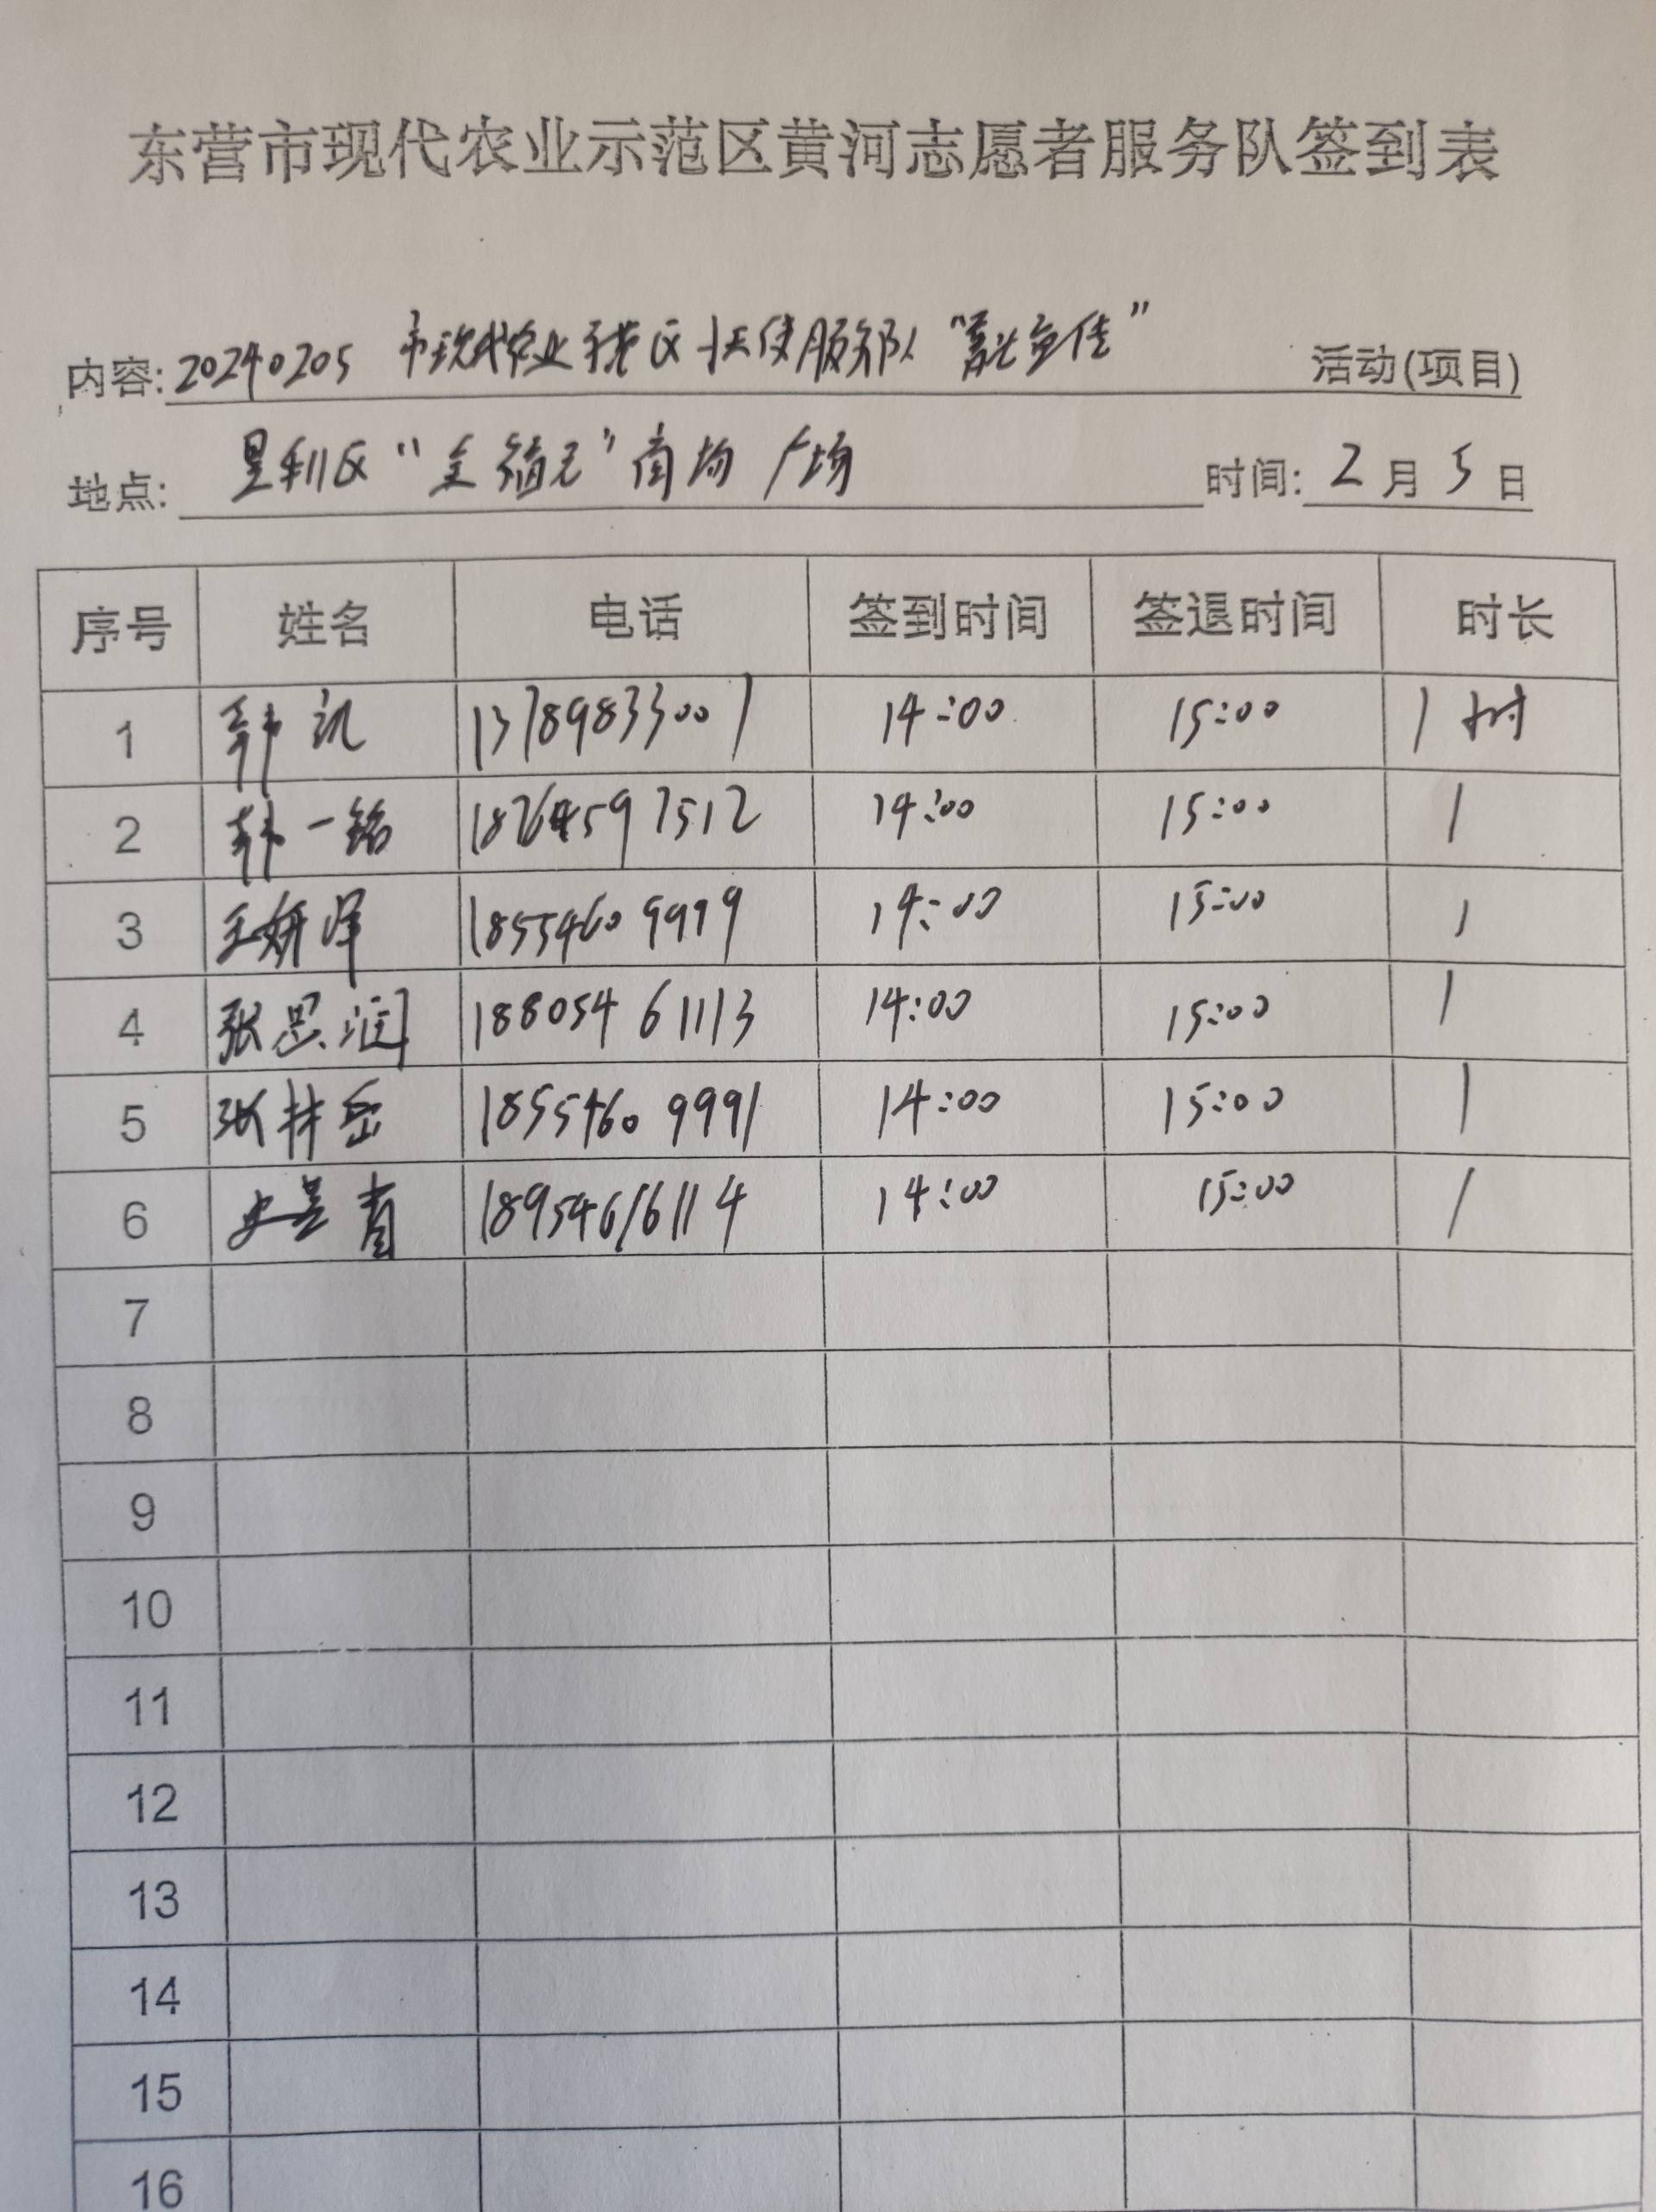 东营市现代农业示范区黄河志愿者服务队签到表
内容: 20240205 市现代农业示范区小天使服务队“ ” 活动(项目)
地点: 垦利区“金 元”商场广场 时间: 2月5日
序号 姓名 电话 签到时间 签退时间 时长
1 韩凯 13789833001 14:00 15:00 1小时
2 韩一铭 18264597512 14:00 15:00 1
3 王妍泽 18554609999 14:00 15:00 1
4 张思润 18805461113 14:00 15:00 1
5 张林岳 18554609991 14:00 15:00 1
6 史 18954616114 14:00 15:00 1
7
8
9
10
11
12
13
14
15
16